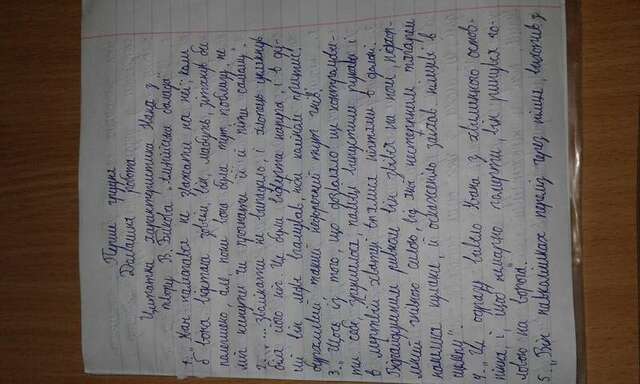 Перше грудня
Домашня робота
Цитатна характеристика Івана з
твору В. Бикова „Альпійська балада"
1. „Іван намагався не зважати на неї; коли
б вона відстала зовсім, він, мабуть, зітхнув би
полегшено, але, поки вона була тут, поблизу, не
міг кинути чи прогнати її й піти самому".
2. „ ...Зволікати не випадало, і хлопець
біля його ніг. Це була відверта наруга, і в ду-
ші він ледве вгамував, ніби коліном притис,
бурхливий, такий недоречний тут гнів."
3. „Щось із того, що дозволяло ще контролюва-
ти себе, зрушилося, пальці випустили рукави і
в мертвій хватці вп'ялися нігтями в долоні.
ривком він звівся на ноги, підхоп-
лений гнівною силою, від якої нестерпним тягарем
налилися кулаки, й оскаженіло заїхав німцеві в
щелепу".
4. „Це одразу вивело Івана з хвилинного остов-
піння, і, щоб немарно померти, він ринувся го-
ловою на ворога".
5. „Він навколішках переліз через німця, вихопив з